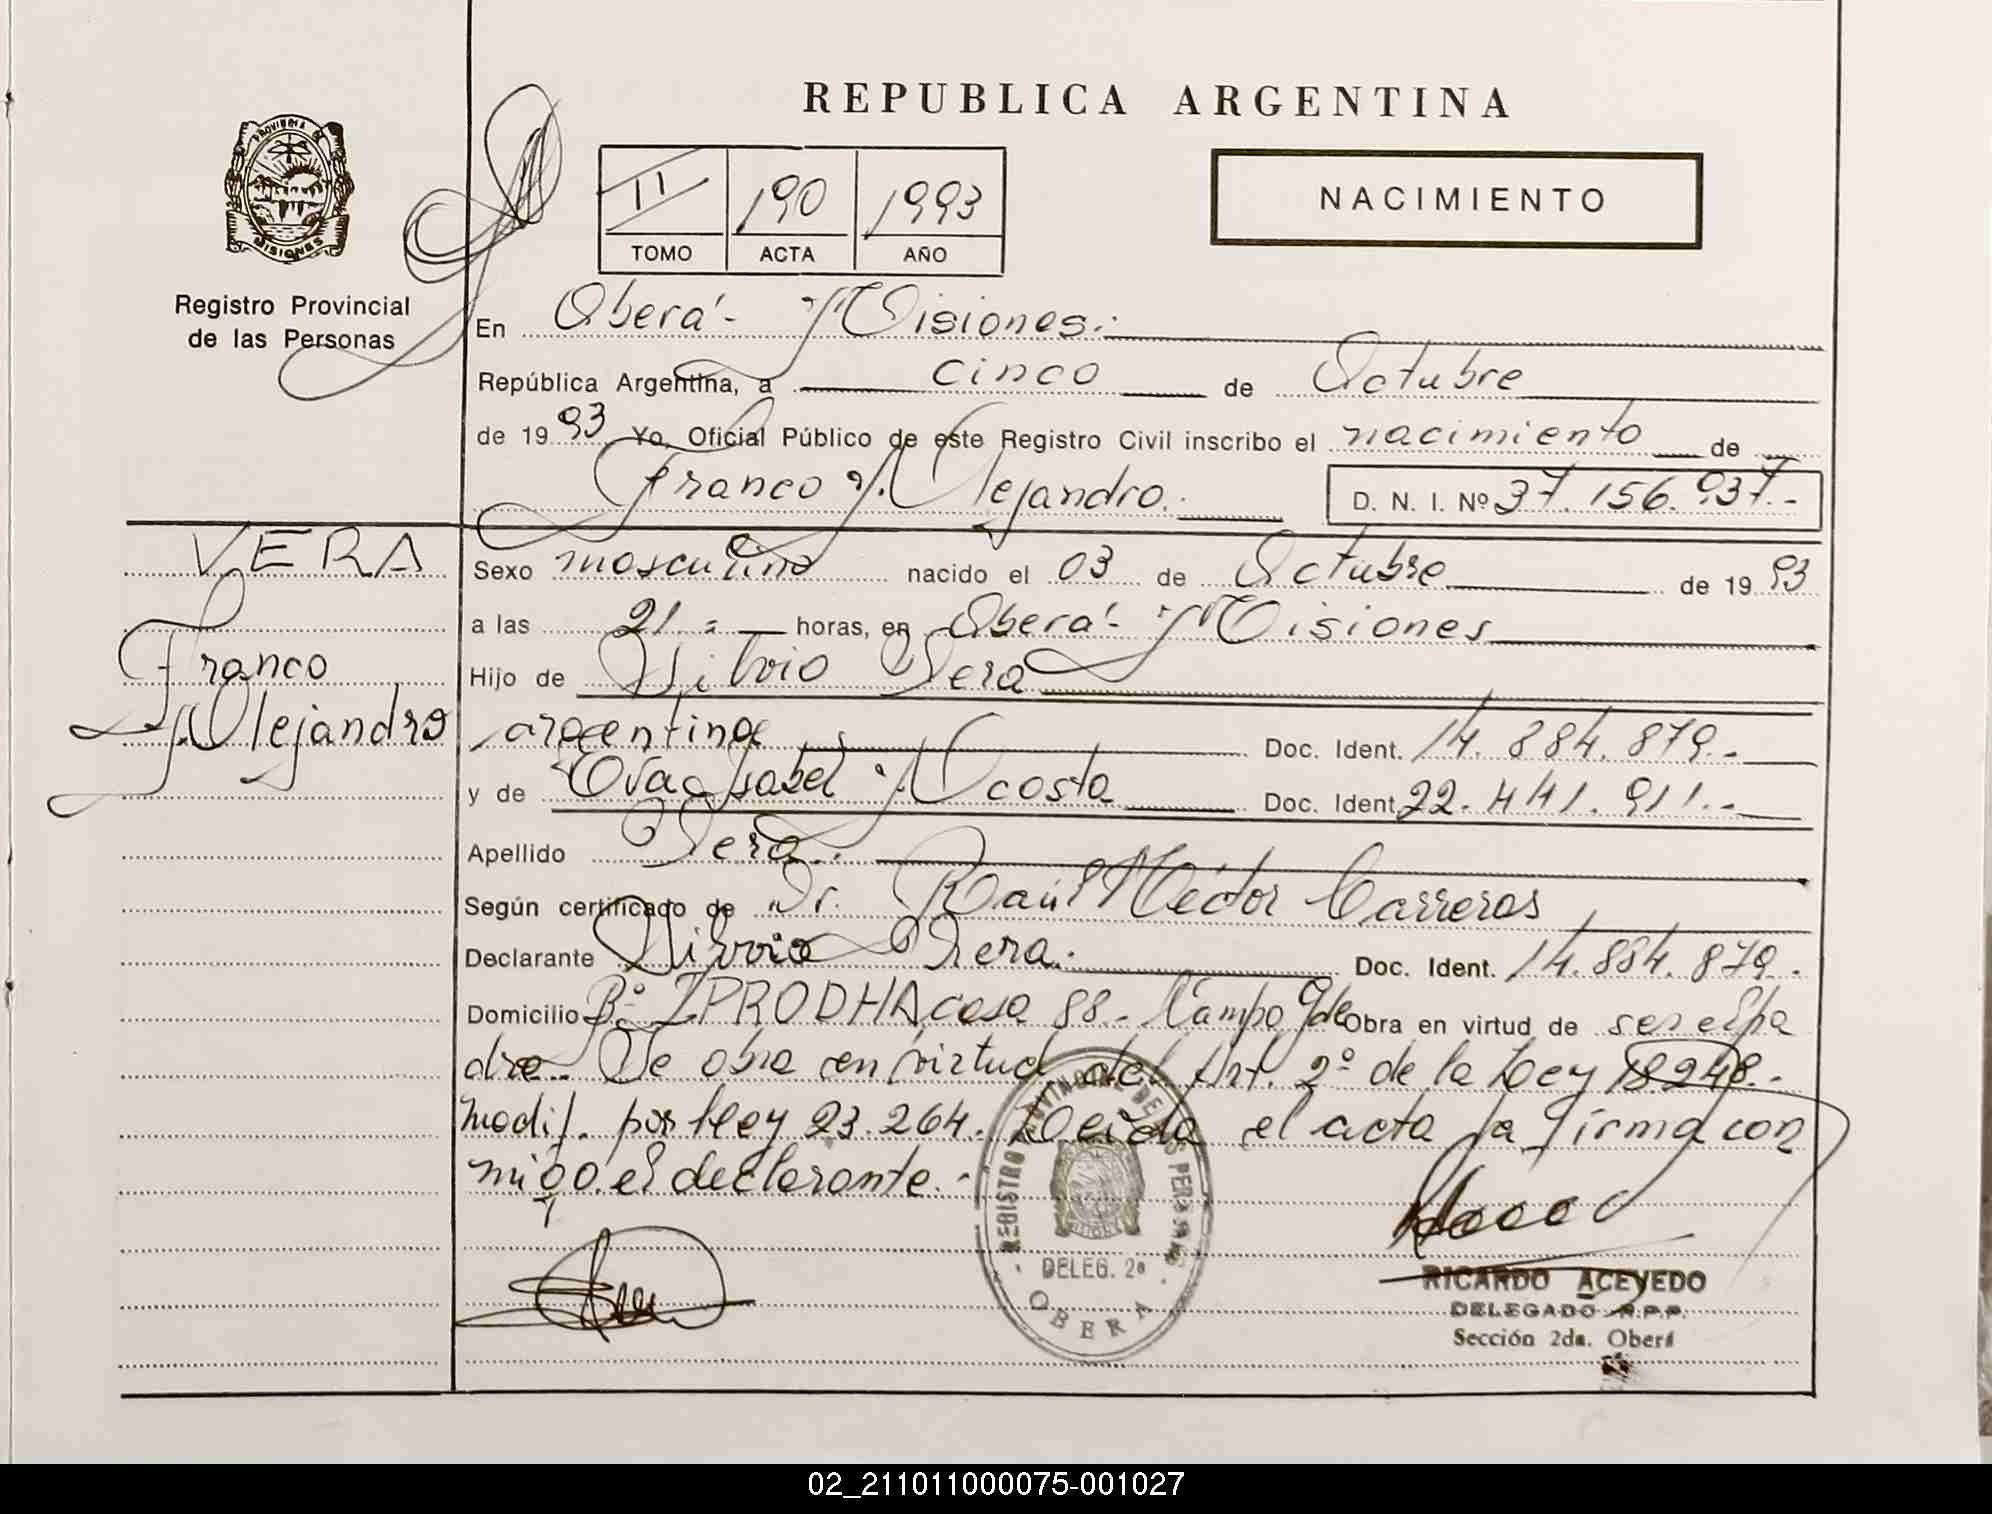 REPUBLICA ARGENTINA
PROVINCIA DE
MISIONES
Registro Provincial
de las Personas
II 190 1993
TOMO ACTA AÑO
NACIMIENTO
En Oberá - Misiones.
República Argentina, a cinco de Octubre
de 1993 Yo, Oficial Público de este Registro Civil inscribo el nacimiento de
Franco Alejandro. D. N. I. Nº 37.156.937.-
VERA
Franco
Alejandro
Sexo masculino nacido el 03 de Octubre de 1993
a las 21.= horas, en Oberá - Misiones
Hijo de Silvio Vera
argentina Doc. Ident. 14.884.879.-
y de Isabel Acosta Doc. Ident. 22.441.911.-
Apellido Vera.
Según certificado de Dr. Raúl Héctor Carreras
Declarante Silvio Vera. Doc. Ident. 14.884.879.
Domicilio Bº IPRODHA, casa 88.- Campo Gde Obra en virtud de ser el pa
dre.- Se obra en virtud del Art. 2º de la Ley 18.248.-
modif. por Ley 23.264. Leída el acta la firma con
migo el declarante.-
REGISTRO PERSONAS
DELEG. 2a
OBERA
RICARDO ACEVEDO
DELEGADO R.P.P.
Sección 2da. Oberá
02_211011000075-001027